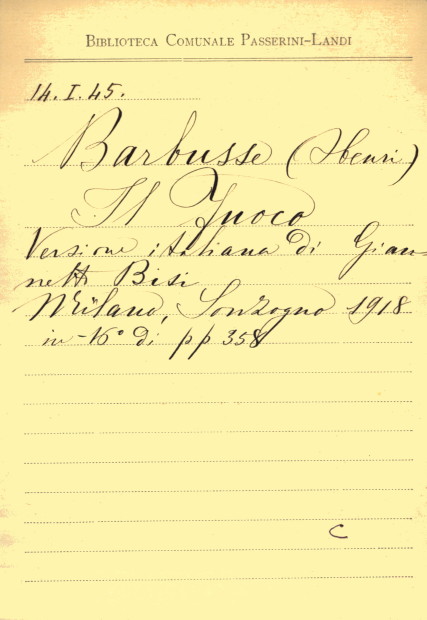 BIBLIOTECA COMUNALE PASSERINI-LANDI
14. I. 45.
Barbusse (Henri)
Il Fuoco
Versione italiana di Gian-
netto Bisi
Milano, Sonzogno 1918
in-16° di pp 358
C